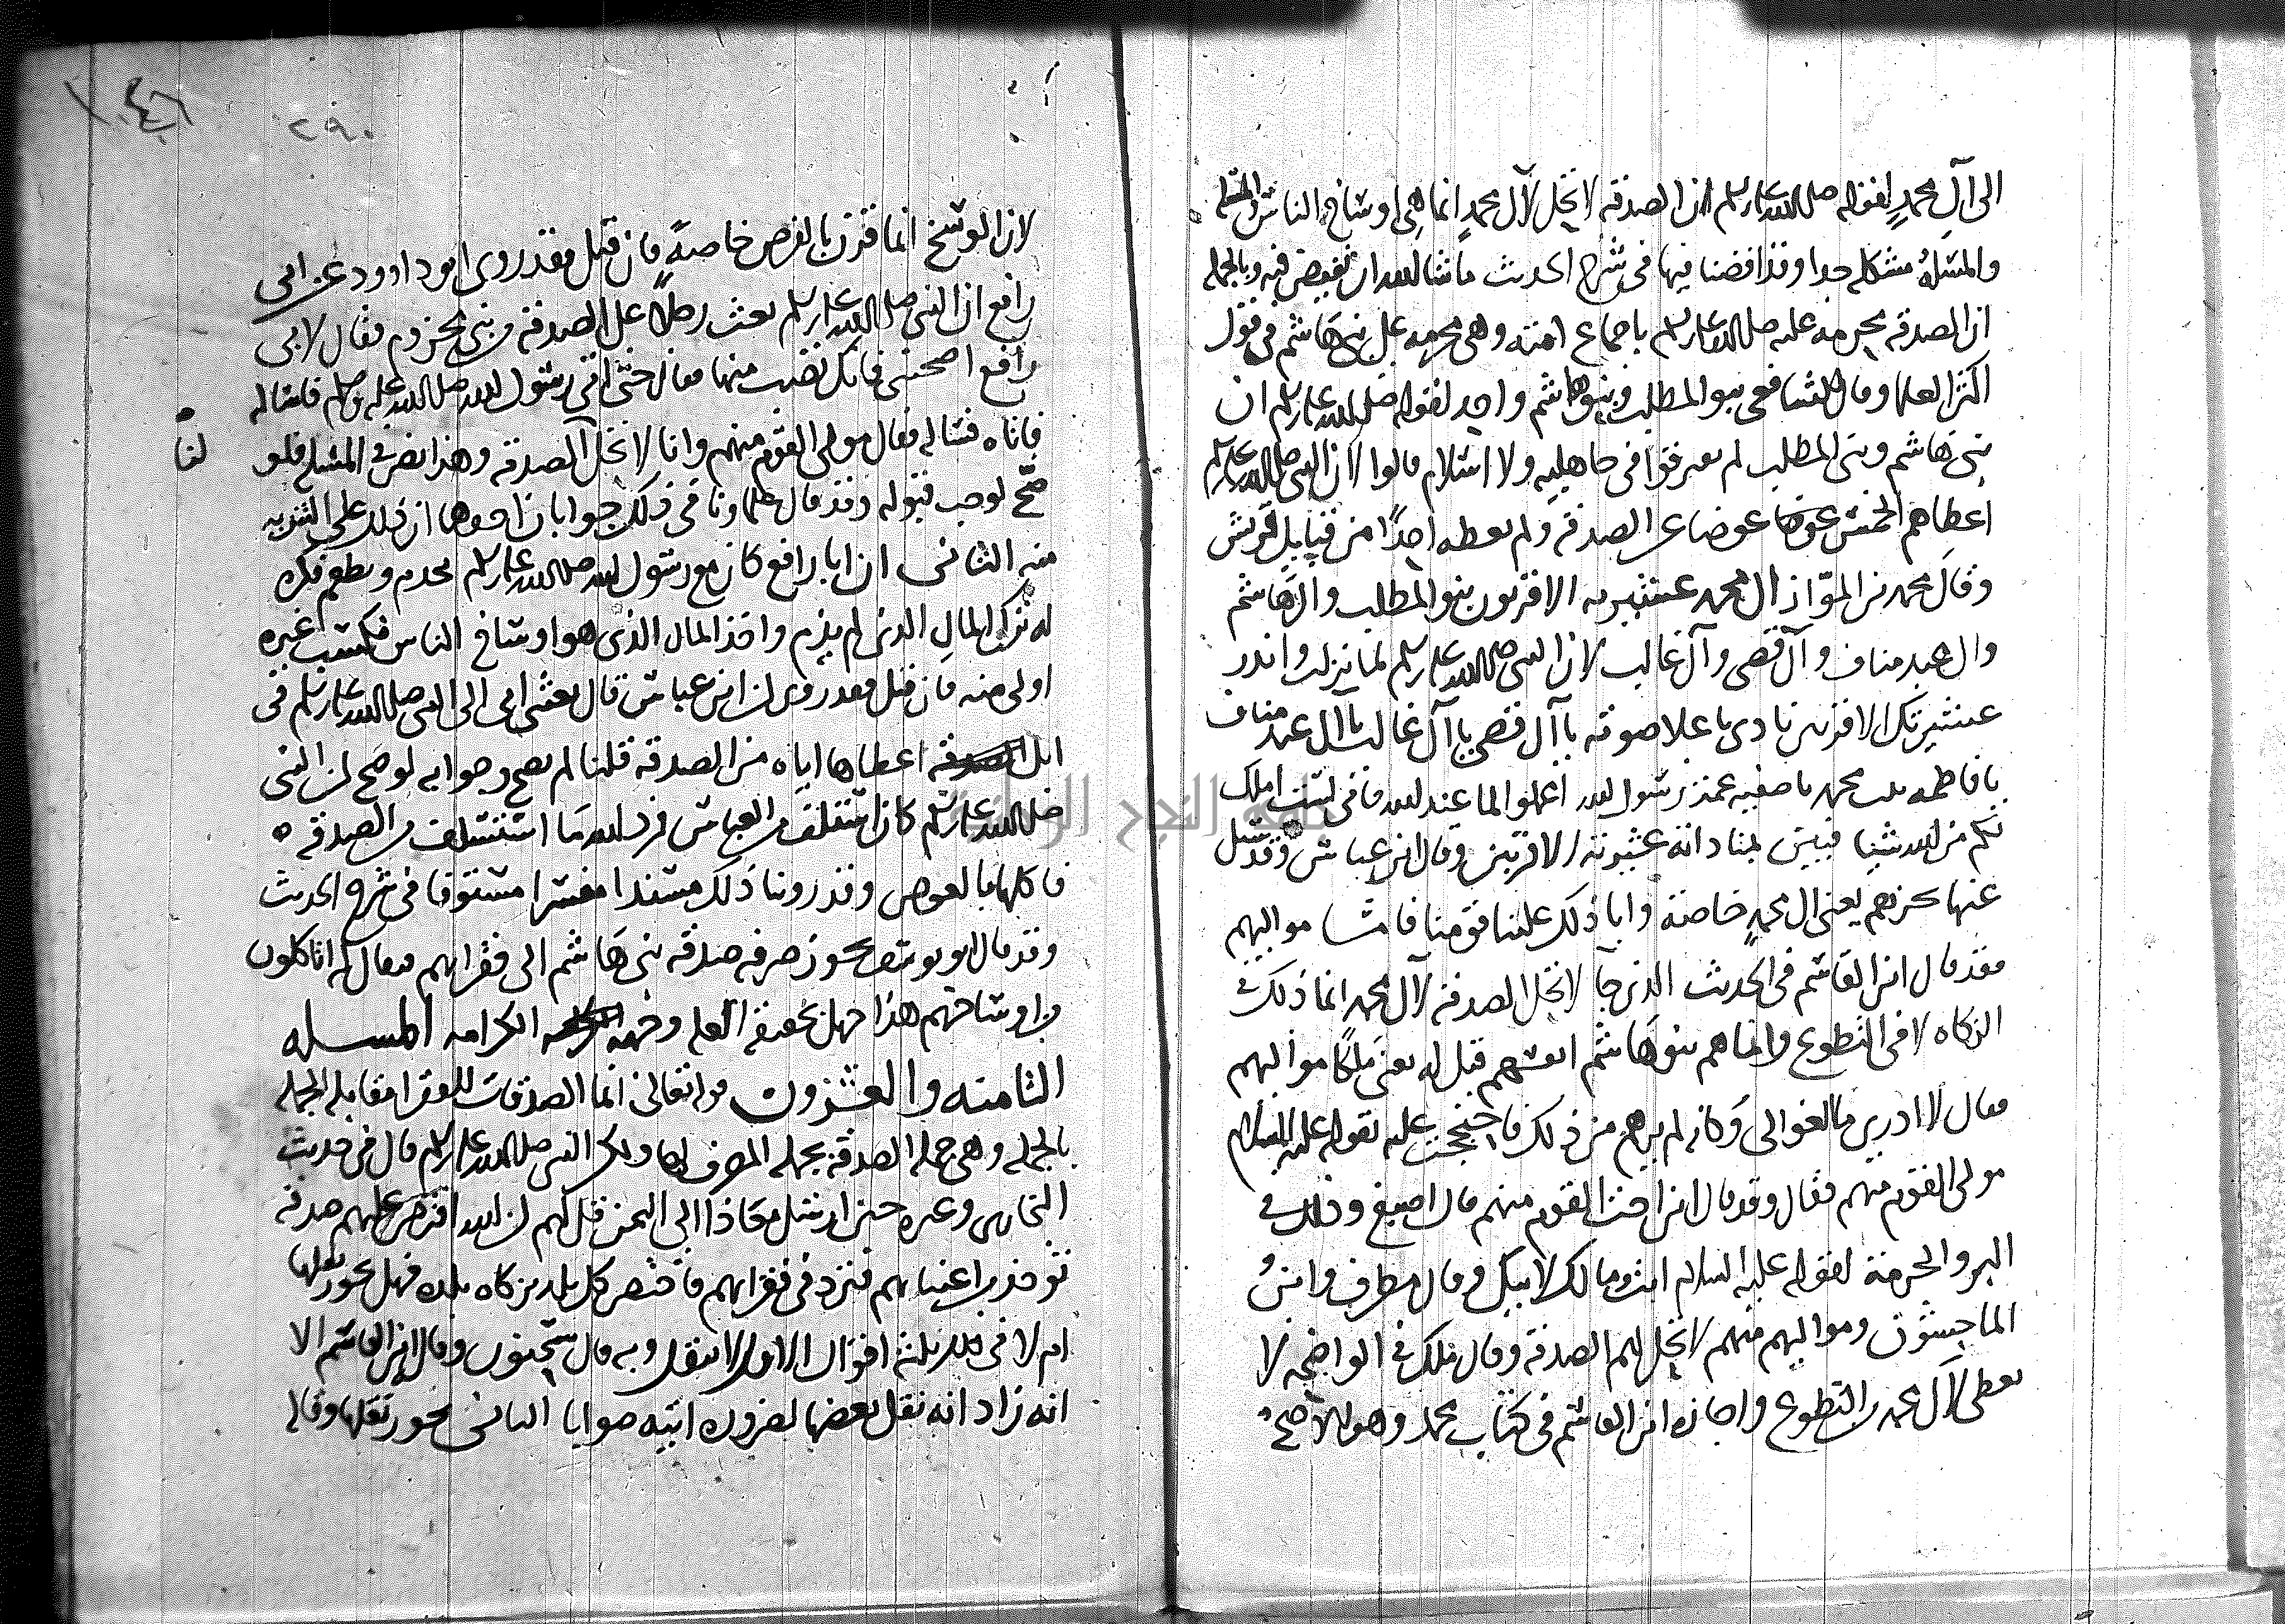 الى آل محمد لقوله صلى الله عليه وسلم ان الصدقه لا تحل لآل محمد انما هى اوساخ الناس والمسله
والمسلة مشكله جدا وقد افضنا فيها فى شرح الحديث ما شا الله ان نفيض فيه وبالجمله
ان الصدقه محرمه عليه صلى الله عليه وسلم باجماع امته وهى محرمه على بنى هاشم فى قول
اكثر العلما وقال الشافعى بنوا المطلب وبنو هاشم واحد لقوله صلى الله عليه وسلم ان
بنى هاشم وبنى المطلب لم يفترقوا فى جاهليه ولا اسلام قالوا لان النبى صلى الله عليه وسلم
اعطاهم الخمس عوضا عن الصدقه ولم يعطه احدًا من قبايل قريش
وقال محمد بن الموّاز آل محمد عشيرته الاقربون بنو المطلب وآل هاشم
وال عبد مناف وآل قصى وآل غالب لان النبى صلى الله عليه وسلم لما نزلت وانذر
عشيرتك الاقربين نادى باعلا صوته يا آل قصى يا آل غالب يا آل عبد مناف
يا فاطمه بنت محمد يا صفيه عمة رسول الله اعملوا لما عند الله فانى لست املك
لكم من الله شيئا فبين بمناداته عشيرته الاقربين وقال ابن عباس وقد سيل
عنها نحن هم يعنى ال محمد خاصة وابا ذلك علينا قومنا فاما مواليهم
فقد قال ابن القاسم فى الحديث الذى جا لا تحل الصدقه لآل محمد انما ذلك فى
الزكاه لا فى التطوع وانما هم بنو هاشم انفسهم قيل له يعنى ملكا مواليهم
فقال لا ادرى ما الموالى وكانه لم يرهم من ذلك فاحتججت عليه بقوله عليه السلام
مولى القوم منهم فقال وقد قال ابن اخت القوم منهم قال اصبغ وذلك فى
البر والحرمة لقوله عليه السلام انت ومالك لابيك وقال مطرف وابن
الماجشون ومواليهم منهم لا تحل لهم الصدقه وقال ملك فى الواضحه لا
يعطى لآل محمد من التطوع واجازه ابن القاسم فى كتاب محمد وهو الاصح
٢٩٠
لان الوسخ انما قرن بالفرض خاصة فان قيل فقد روى ابو داوود عن ابى
رافع ان النبى صلى الله عليه وسلم بعث رجلا على الصدقه من بنى مخزوم فقال لابى
رافع اصحبنى فانك تصيب منها فقال حتى آتى رسول الله صلى الله عليه وسلم فاساله
فاتاه فساله فقال مولى القوم منهم وانا لا تحل لنا الصدقه وهذا نص فى المسله فلو
لنا
صح لوجب قبوله وقد قال علماونا فى ذلك جوابان احدهما ان ذلك على التنزيه
منه الثانى ان ابا رافع كان مع رسول الله صلى الله عليه وسلم يخدم ويطعم فكره
له ترك المال الذى لم يذم واخذ المال الذى هو اوساخ الناس فكسب غيره
اولى منه فان قيل فقد روى ان ابن عباس قال بعثنى ابى الى النبى صلى الله عليه وسلم فى
ابل الصدقه اعطاها اياه من الصدقه قلنا لم يصح وجوابه لو صح ان النبى
صلى الله عليه وسلم كان استسلف من العباس فرد الله ما استسلف من الصدقه
فاكلها بالعوض وقد روينا ذلك مسندا مفسرا مستوفا فى شرح الحديث
وقد قال ابو يوسف يجوز صرف صدقه بنى هاشم الى فقرايهم فيقال له اتاكلون
من اوساخهم هذا جهل بحقيقه العله وجهه الكرامه المسله
الثامنه والعشرون قوله تعالى انما الصدقات للفقرا مقابله الجمله
بالجمله وهى جمله الصدقة بجمله المصرف لها ولكن النبى صلى الله عليه وسلم قال فى حديث
البخارى وغيره حين ارسل معاذا الى اليمن قل لهم ان الله افترض عليهم صدقه
توخذ من اغنيايهم فترد فى فقرايهم فاختص كل بلد بزكاه بلده فهل يجوز نقلها
ام لا فى ذلك ثلثه اقوال الاول لا تنقل وبه قال سحنون وقاله ابن القاسم الا
انه زاد انه نقل بعضها لضروره رايته صوابا الثانى يجوز نقلها وقاله